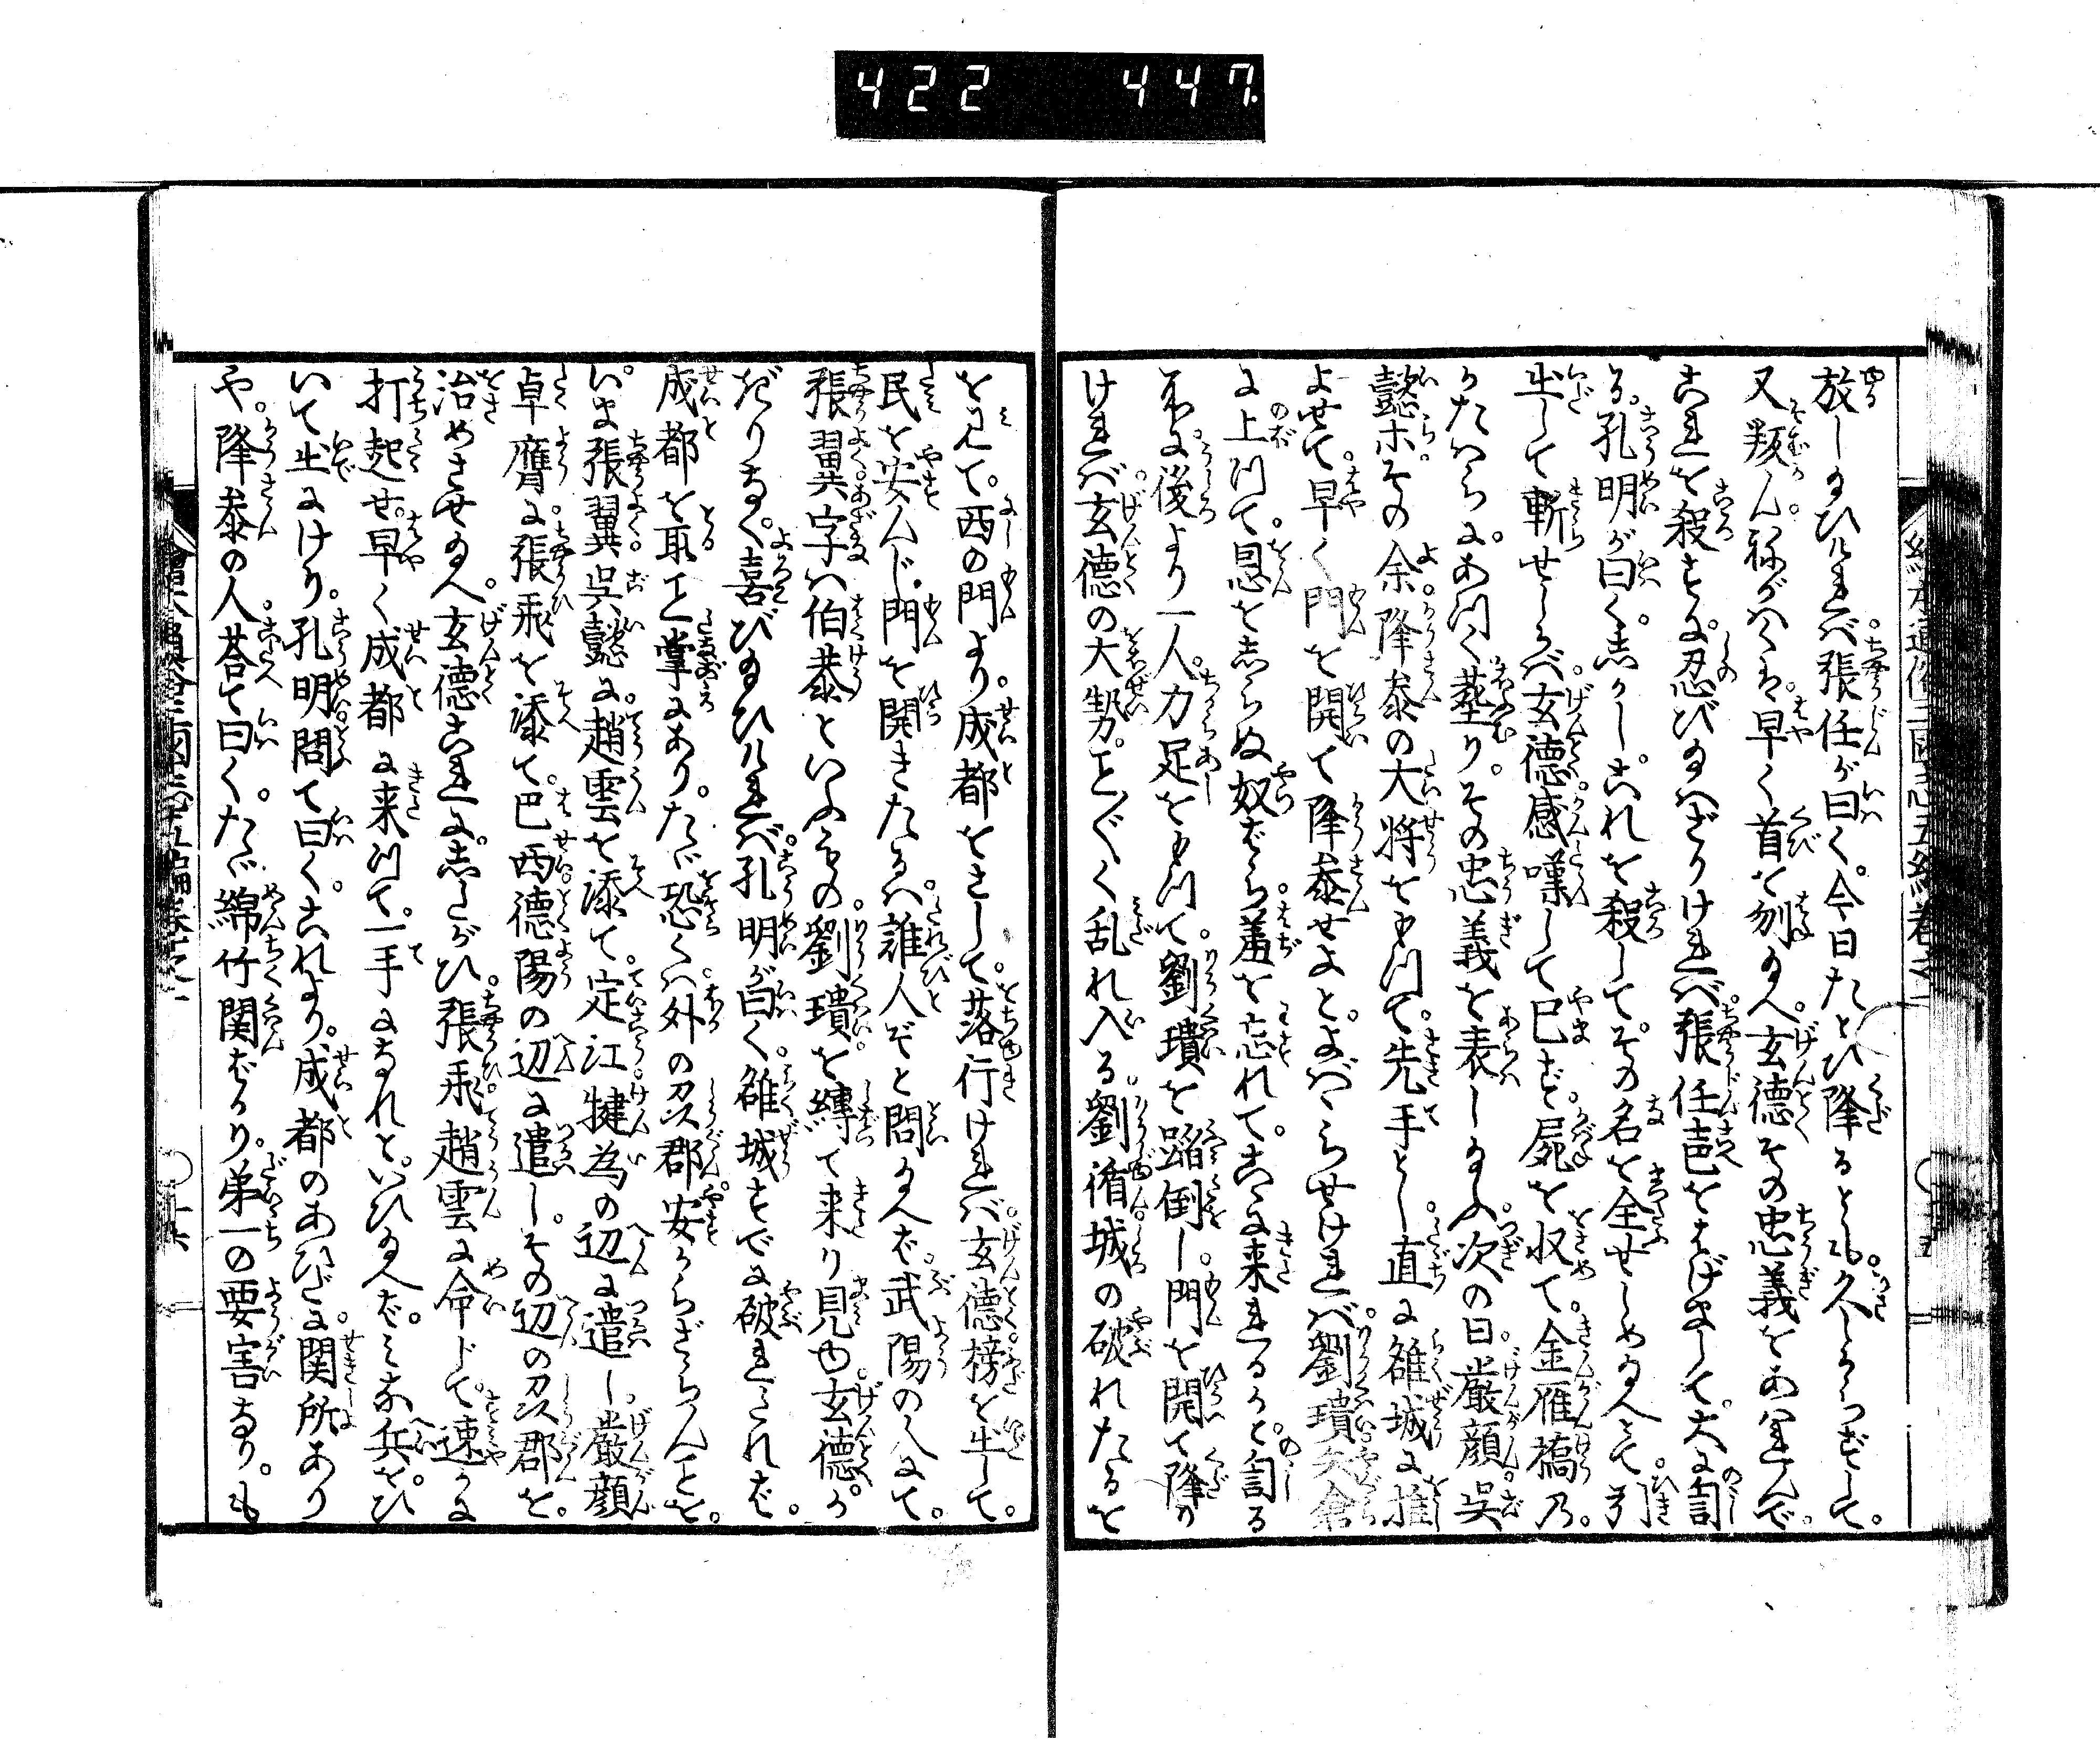 422 447.
放し給ひければ。張任が曰く。今日たとひ降るとも。久しからずして。
又叛ん。ねがはくは。早く首を刎給へ。玄徳その忠義をあはれんで。
これを殺すに忍び給はざりければ。張任声をはげまして。大に罵
る。孔明が曰く。しかし。これを殺して。その名を全せしめ給へとて。引
出して斬せしかば。玄徳感嘆して已まず。屍を収て。金雁橋の。
かたはらに。あつく葬り。その忠義を表し給ふ。次の日。厳顔。呉
懿ホその余降参の大将をもつて。先手とし。直に雒城に推
よせて。早く門を開て降参せよと。よばゝらせければ。劉璝矢倉
に上つて。恩をしらぬ奴ばら。羞を忘れて。こゝに来れるかと。罵る
処に後より一人。力足をもつて。劉璝を蹈倒し。門を開て降り
ければ。玄徳の大勢。ことごとく乱れ入る。劉循。城の破れたるを
を見て。西の門より。成都をさして。落行ければ。玄徳。榜を出して。
民を安んじ。門を開きたるは。誰人ぞと問給へば。武陽の人にて。
張翼。字は伯恭といふもの。劉璝を縛て来り見ゆ。玄徳。か
ぎりなく喜び給ひければ。孔明が曰く。雒城すでに破れたれば。
成都を取こと掌にあり。たゞ恐くは。外の州郡安からざらんことを。
いま張翼。呉懿に。趙雲を添て。定江。犍為の辺に遣し。厳顔
卓膺に。張飛を添て。巴西。徳陽の辺に遣し。その辺の州郡を。
治めさせ給へ。玄徳これに。したがひ。張飛。趙雲に命じて。速かに
打起せ。早く成都に来つて。一手になれと。いひ給へば。みな兵をひ
いて出にけり。孔明問て曰く。これより。成都のあひだに。関所あり
や。降参の人答て曰く。たゞ綿竹関ばかり。第一の要害なり。も